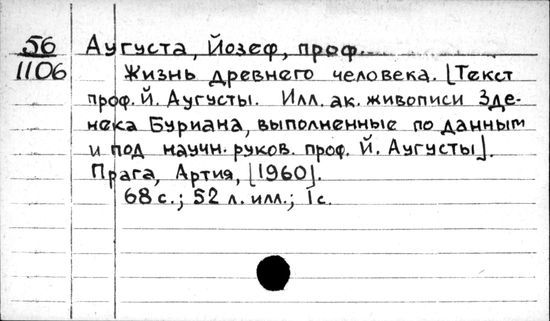 56
1106
Аугуста, Йозеф, проф.
Жизнь древнего человека. [Текст
проф. Й. Аугусты. Илл. ак. живописи Зде-
нека Буриана, выполненные по данным
и под научн. руков. проф. Й. Аугусты].
Прага, Артия, [1960].
68 с.; 52 л. илл.; 1с.